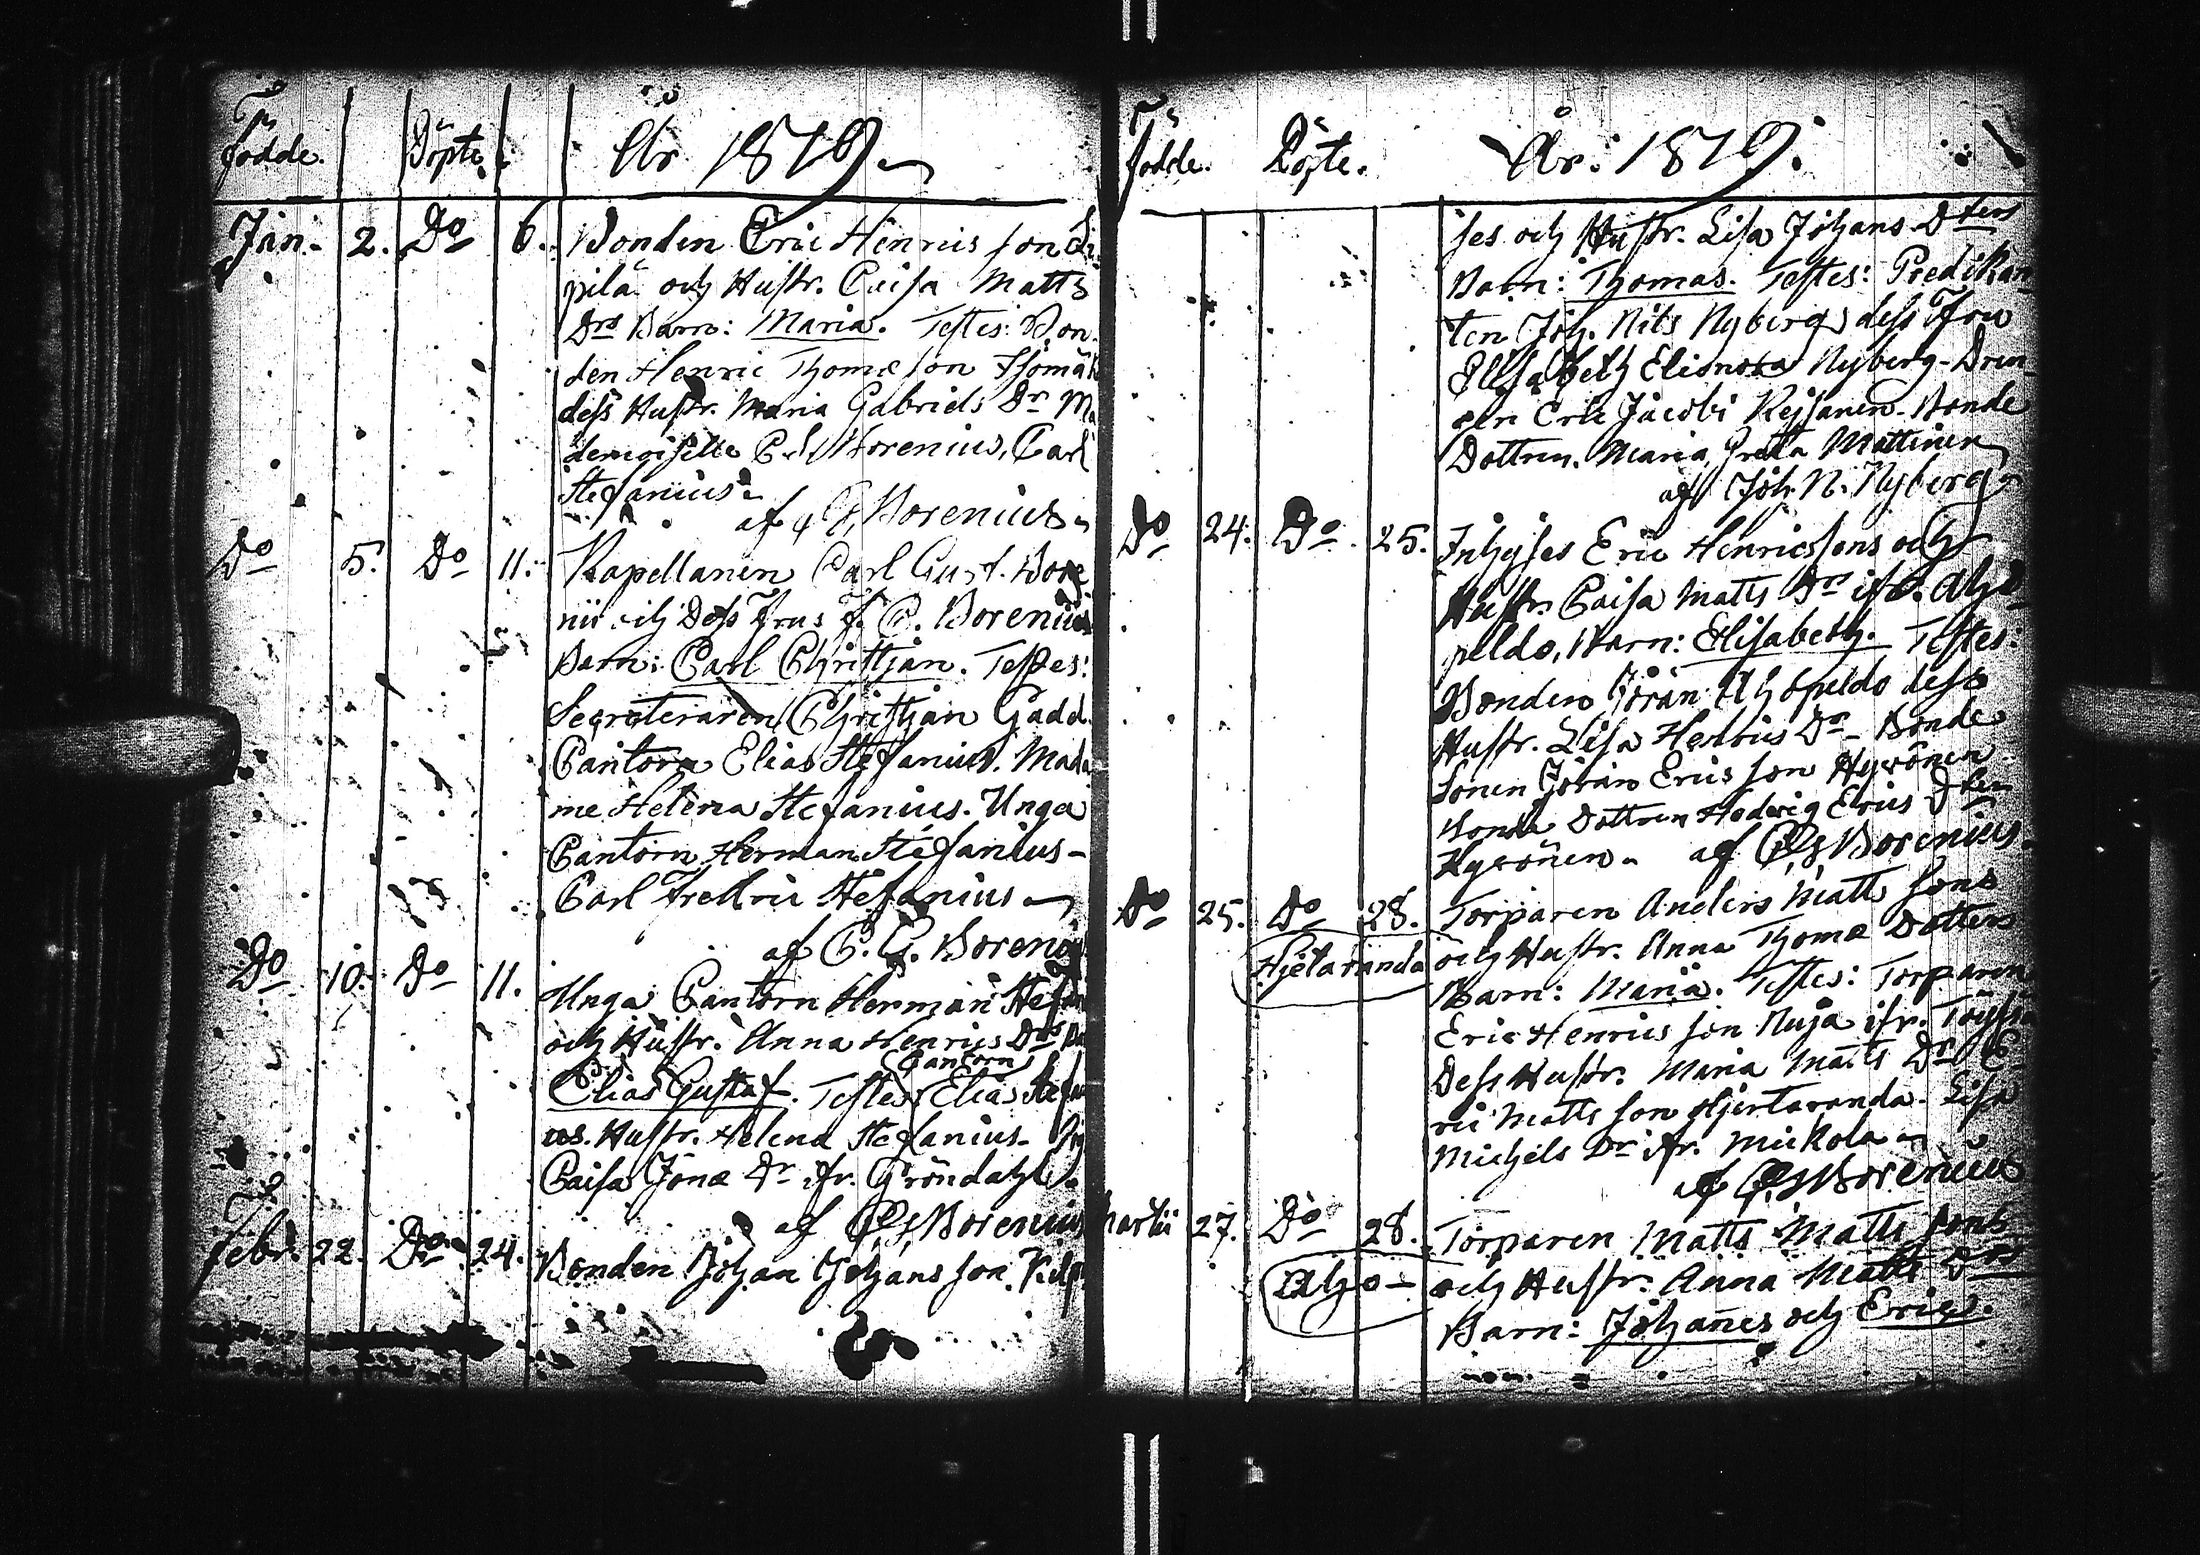 Födde. Döpte. År 1819.
Jan. 2. Do 6. Bonden Eric Henrics son Li
pilä och Hustr. Caisa Matts
Drs Barn: Maria. Testes: Bon
den Henric Thomæ son
dess Hustr. Maria Gabriels Dr Ma
demoiselle Borenius, Carl
Stefanius
af C G Borenius
Do 5. Do 11. Kapellanen Carl Gust. Bore
nii och Dess Frus F. C. Borenius
Barn: Carl Christjan. Testes:
Secreteraren Christjan Gadd.
Cantorn Elias Stefanius. Mada
me Helena Stefanius. Unga
Cantorn Herman Stefanius-
Carl Fredric Stefanius
af C. G. Boreni
Do 10. Do 11. Unga Cantorn Herman Stefan
och Hustr. Anna Henrics Drs Ba
Cantorn
Elias Gustaf. Testes Elias Stefani
us. Hustr. Helena Stefanius.
Caisa Jonæ Dr ifr. Gröndahl.
af C G Borenius
Febr. 22. Do 24. Bonden Johan Johans son
Födde. Döpte. År: 1819.
ses och Hustr. Lisa Johans Dters
Barn: Thomas. Testes: Predikan
ten Joh. Nils Nyberg dess Fru
Elisabeth Elionora Nyberg - Dren
gen Eric Jacobi Rejjanen. Bonde
Dottren. Maria Greta Mattinen
af Joh. N. Nyberg
Do 24. Do 25. Inhyses Eric Henricssons och
Hustr. Caisa Matts Drs ifr. Aho
peldo, Barn: Elisabeth. Testes:
Bonden Göran Ahopeldo dess
Hustr. Lisa Henrics Dr - Bonde
Sonen Göran Erics son Hyvönen
Bonde Dottren Hedvig Erics Dter
Hyvönen. af C G Borenius.
Do 25. Do 28. Torparen Anders Matts sons
Hjetaranda och Hustr. Anna Thomæ Dotters
Barn: Maria. Testes: Torparen
Eric Henrics son Nuja ifr.
Dess Hustr. Maria Matts Dr E
ric Matts son Hjertaranda. Lisa
Michels Dr ifr. Mickola
af C G Borenius
Martii 27. Do 28. Torparen Matts Matts sons
Aho- och Hustr. Anna Matts Drs
Barn: Johannes och Eric.